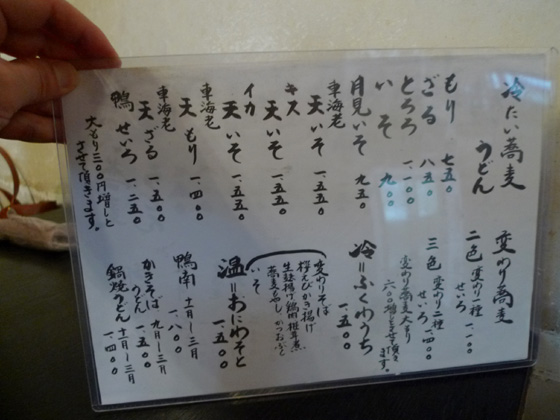 冷たい蕎麦
うどん
もり 七五〇
ざる 八五〇
とろろ 一、一〇〇
いそ 九〇〇
月見いそ 九五〇
車海老
天いそ 一、五五〇
キス
天いそ 一、五五〇
イカ
天いそ 一、五五〇
車海老
天もり 一、四〇〇
車海老
天ざる 一、五五〇
鴨せいろ 一、二五〇
大もり三〇〇円増しと
させて頂きます。
変わり蕎麦
二色 変わり一種
せいろ 一、一〇〇
三色 変わり二種
せいろ 一、四〇〇
変わり蕎麦大もり
六〇〇増とさせて頂き
ます。
冷=ふくわうち
一、五〇〇
変わりそば
桜えびかき揚げ
生麸揚げ 鴨肉 椎茸煮
蕎麦もやし かつおぶし
いそ
温=おにわそと
一、五〇〇
鴨南 十一月〜三月
一、八〇〇
かきそば 九月〜三月
うどん 一、五〇〇
鍋焼 十一月〜三月
うどん 一、四〇〇